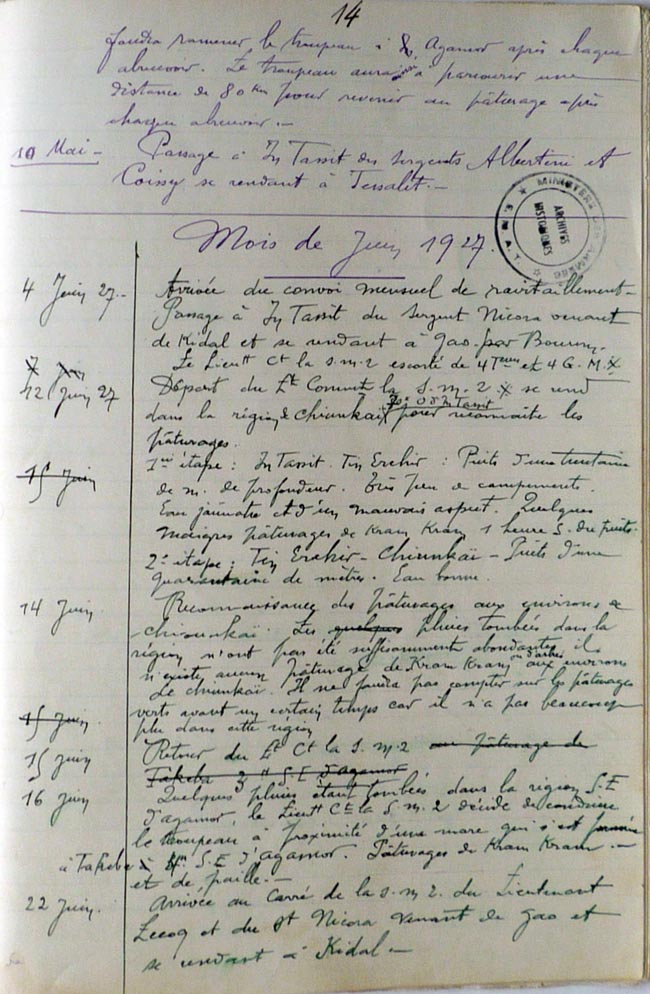 14
faudra ramener le troupeau à Agamor après chaque
abreuvoir. Le troupeau aura à parcourir une
distance de 80 km pour revenir au pâturage après
chaque abreuvoir. —
10 Mai — Passage à In Tassit des sergents Albertini et
Coissy se rendant à Tessalit. —
MINISTERE DES ARMEES
ARCHIVES
HISTORIQUES
Mois de Juin 1927.
4 Juin 27. — Arrivée du convoi mensuel de ravitaillement —
Passage à In Tassit du Sergent Nicora venant
de Kidal et se rendant à Gao par Bourem.
Le Lieutt Ct la S.M.2 escorté de 4 et 4 G.M.
12 Juin 27 Départ du Lt Commt la S.M.2 se rend
dans la région de Chiunkaï pour reconnaître les
pâturages.
15 Juin 1ère étape : In Tassit. Tin Erchir : Puits d'une trentaine
de m. de profondeur. Très peu de campements.
Eau jaunâtre et d'un mauvais aspect. Quelques
maigres pâturages de Kram Kram 1 heure S. du puits.
2e étape : Tin Erchir — Chiunkaï — Puits d'une
quarantaine de mètres. Eau bonne.
14 Juin Reconnaissance des pâturages aux environs de
Chiunkaï. Les quelques pluies tombées dans la
région n'ont pas été suffisamment abondantes il
n'existe aucun pâturage de Kram Kram ou d'arbres aux environs
de Chiunkaï. Il ne faudra pas compter sur les pâturages
verts avant un certain temps car il n'a pas beaucoup
plu dans cette région
15 Juin
15 Juin Retour du Lt Ct la S.M.2 au pâturage de
Takeba 3 S.E d'Agamor
16 Juin Quelques pluies étant tombées dans la région S.E
d'Agamor, le Lieutt Ct la S.M.2 décide de conduire
le troupeau à proximité d'une mare qui s'est formée
à Takeba S.E d'Agamor. Pâturages de Kram Kram —
et de paille. —
22 Juin. Arrivée au Carré de la S.M.2. du Lieutenant
Lecoq et du St Nicora venant de Gao et
se rendant à Kidal —